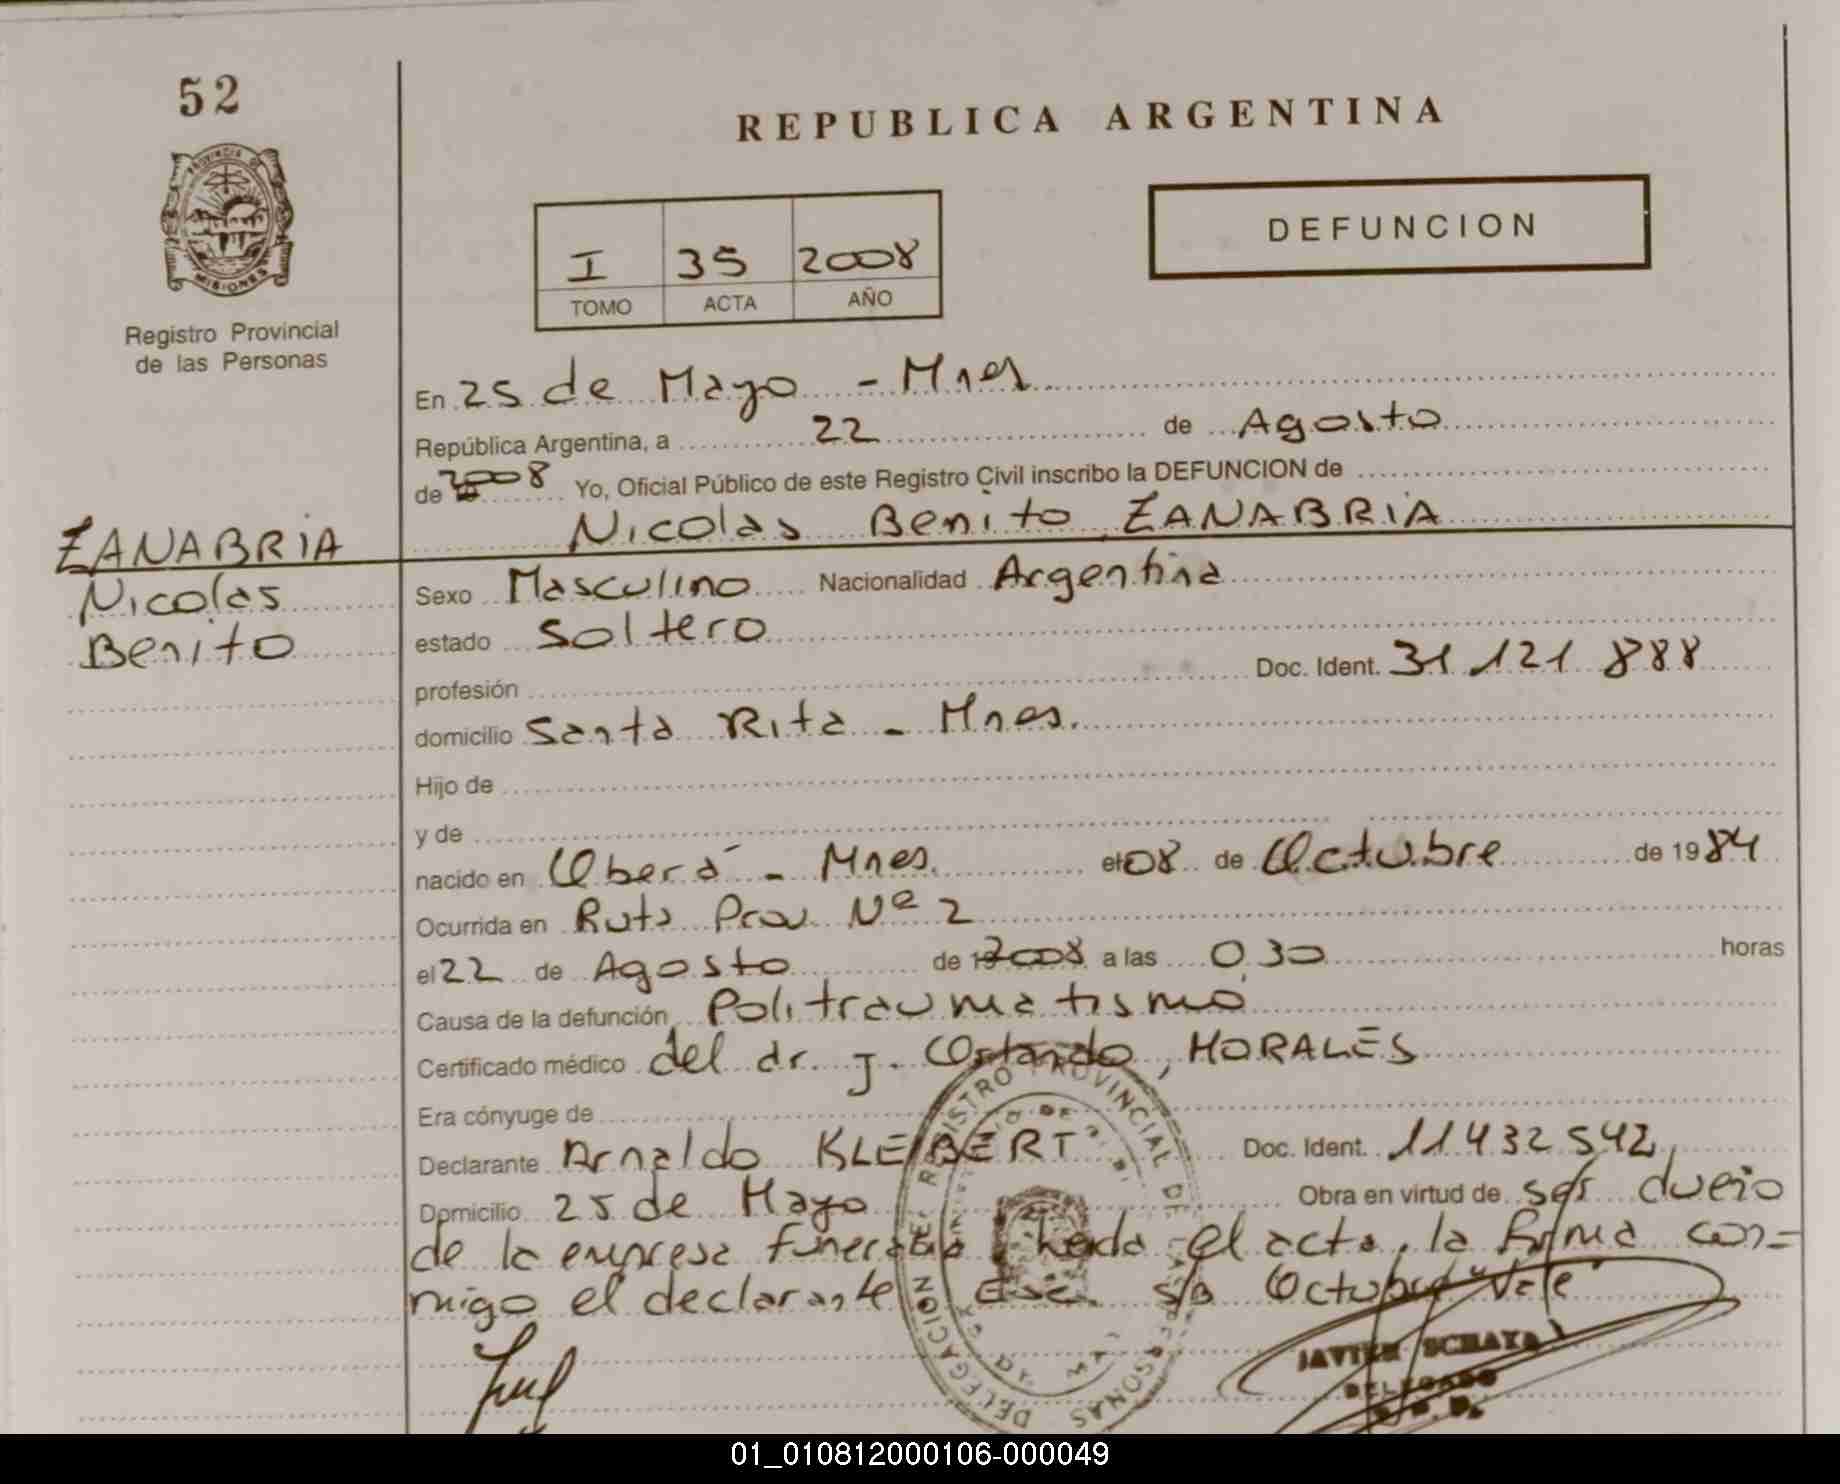 52
REPUBLICA ARGENTINA
PROVINCIA DE
MISIONES
Registro Provincial
de las Personas
DEFUNCION
I 35 2008
TOMO ACTA AÑO
En 25 de Mayo - Mnes
República Argentina, a 22 de Agosto
de 2008 Yo, Oficial Público de este Registro Civil inscribo la DEFUNCION de
Nicolas Benito ZANABRIA
ZANABRIA
Nicolas
Benito
Sexo Masculino Nacionalidad Argentina
estado Soltero
profesión Doc. Ident. 31 121 888
domicilio Santa Rita - Mnes.
Hijo de
y de
nacido en Oberá - Mnes. el 08 de Octubre de 1984
Ocurrida en Ruta Prov. Nº 2
el 22 de Agosto de 2008 a las 0,30 horas
Causa de la defunción Politraumatismo
Certificado médico del dr. J. Orlando, MORALES
Era cónyuge de
Declarante Arnaldo KLEIBERT Doc. Ident. 11432542
Domicilio 25 de Mayo Obra en virtud de ser dueño
de la empresa funeraria, el acta, la firma con=
migo el declarante s/b Octubre "Vale"
DELEGACION DE REGISTRO PROVINCIAL DE LAS PERSONAS
JAVIER SCHAYA
DELEGADO
01_010812000106-000049